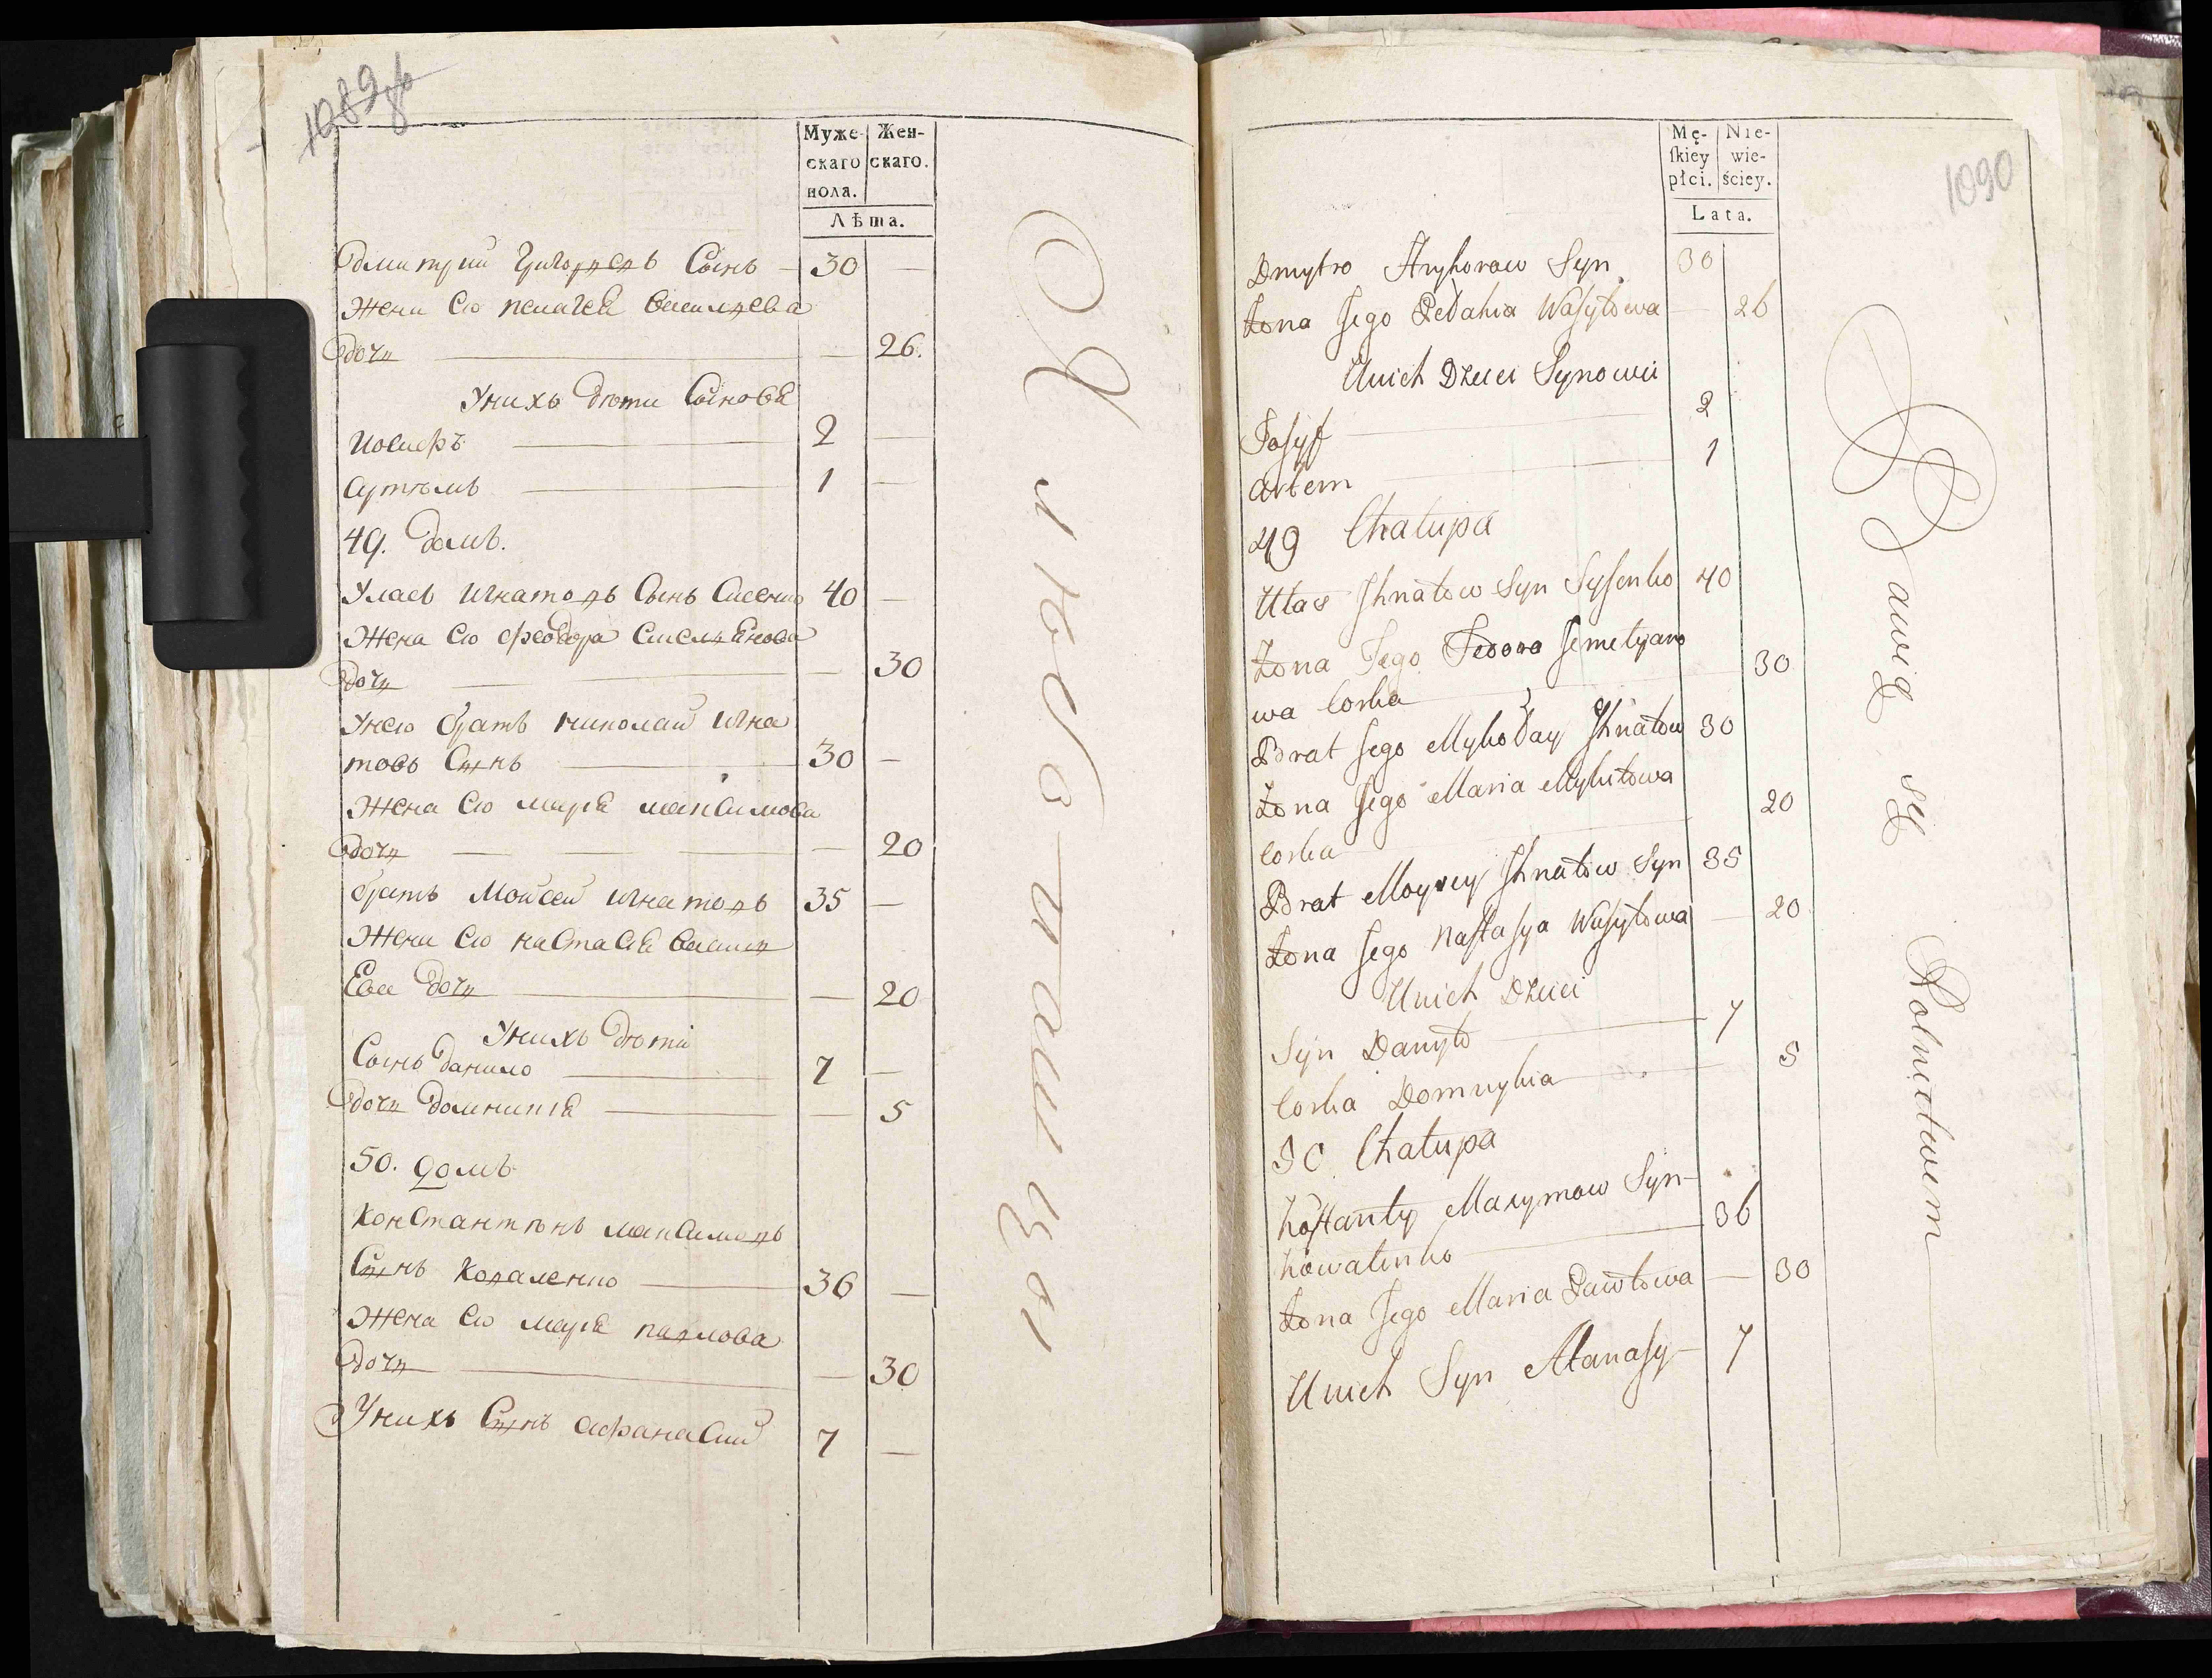 1089 об
Муже-
скаго
пола.
Жен-
скаго.
Лѣта.
Дмитрий Григоревъ Сынъ — 30 —
Жена Его пелагея Василева
дочь — 26.
У нихъ дѣти Сыновя
Иосифъ — 2 —
артѣмъ — 1 —
49. домъ.
Уласъ Игнатовъ Сынъ Сисенко 40 —
Жена Его феодора Емельянова
дочь — 30
У него братъ николай Игна
товъ Сынъ — 30 —
Жена Его мария максимова
дочь — 20
братъ Мойсей Игнатовъ 35 —
Жена Его настасия Васил
Ева дочь — 20
У нихъ дѣти
Сынъ данило — 7 —
дочь домникия — 5
50. домъ
Константѣнъ максимовъ
Сынъ Коваленко — 36 —
Жена Его мария павлова
дочь — 30
У нихъ Сынъ афанасий 7 —
1090
Mę-
skiey
płci.
Nie-
wie-
ściey.
Lata.
Dmytro Hryhorow Syn 30
Żona Jego Pełahia Wasyłowa — 26
Unich Dzieci Synowii
Josyf — 2
artem — 1
49 Chałupa
Ułas Ihnatow Syn Sysenko 40
Żona Jego Fedora Jemelyano
wa Corka — 30
Brat Jego Mykołay Ihnatow 30
Żona Jego Maria Mykitowa
Corka — 20
Brat Moysey Ihnatow Syn 35
Żona Jego Nastasya Wasyłowa — 20
Unich Dzieci
Syn Danyło — 7
Corka Domnykia — 5
50 Chałupa
Kostanty Maxymow Syn
Kowalenko — 36
Żona Jego Maria Pawłowa — 30
Unich Syn Atanasy — 7
Bawią się Rolnictwem